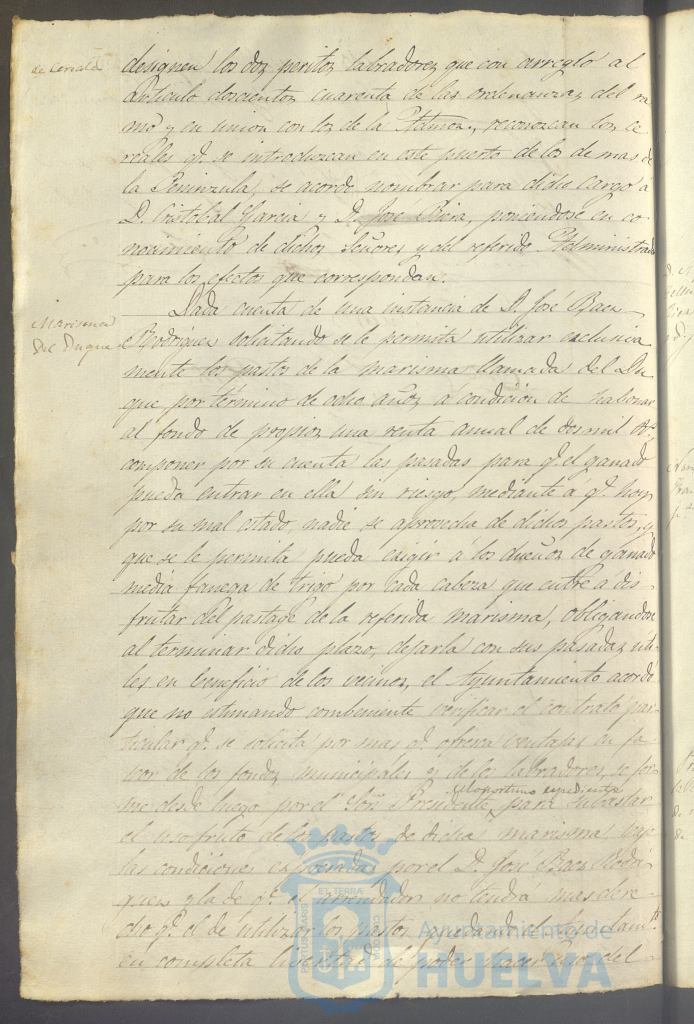 de Cereales
designen los dos peritos labradores que con arreglo al
articulo doscientos cuarenta de las ordenanzas del ra
mo y en union con los de la Admon., reconozcan los ce
reales qe. se introduzcan en este puerto de los demas de
la Peninzula, se acordó nombrar para dicho cargo á
D. Cristobal Garcia y D. Jose, poniendose en co
nocimiento de dichos Señores y del referido Administrador
para los efectos que correspondan.
Marisma
del Duque
Dada cuenta de una instancia de D. José Baez
Rodriguez solicitando se le permita utilizar exclusiva
mente los pastos de la marisma llamada del Du
que, por término de ocho años, á condición de
al fondo de propios una renta anual de dos mil rs.
componer por su cuenta las pasadas para qe. el ganado
pueda entrar en ella sin riesgo, mediante a qe. hoy
por su mal estado, nadie se aprovecha de dichos pastos, y
que se le permita pueda exigir á los dueños de ganado
media fanega de trigo por cada cabeza que entre a dis
frutar del pastage de la referida marisma, obligandose
al terminar dicho plazo, dejarla con sus pasadas uti
les en beneficio de los vecinos, el Ayuntamiento acordó
que no estimando combeniente verificar el contrato par
ticular qe. se solicita por mas qe. ofresca ventajas en fa
vor de los fondos municipales y de los labradores, se for
me desde luego por el Sor. Presidente, el oportuno expediente para subastar
el usofruto de los pastos de dicha marisma bajo
las condiciones expresadas por el D. Jose Baez Rodri
guez y la de qe. el arrendador no tendrá mas dere
cho qe. el de utilizar los pastos, quedando el Ayuntamto.
en completa libertad de poder hacer uso del
Ayuntamiento de
HUELVA